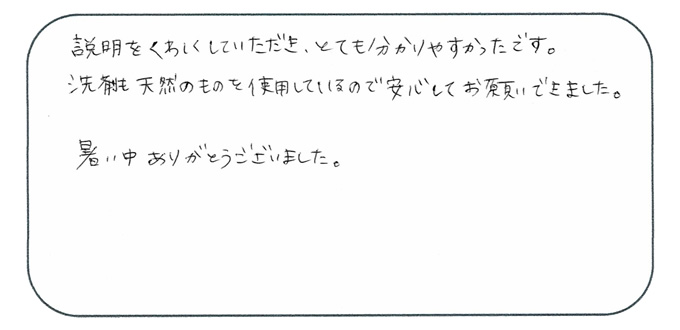 説明をくわしくしていただき、とても分かりやすかったです。
洗剤も天然のものを使用しているので安心してお願いできました。
暑い中ありがとうございました。